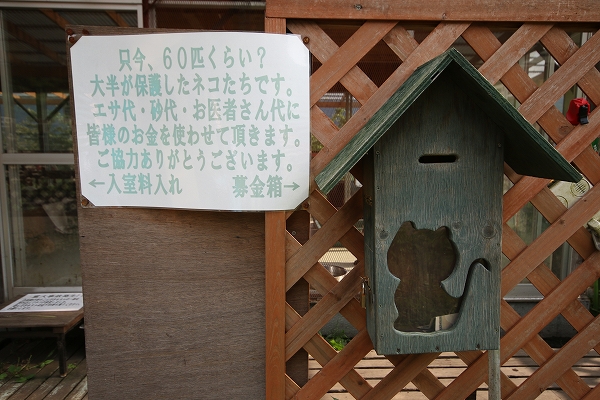 只今、60匹くらい?
大半が保護したネコたちです。
エサ代・砂代・お医者さん代に
皆様のお金を使わせて頂きます。
ご協力ありがとうございます。
←入室料入れ 募金箱→